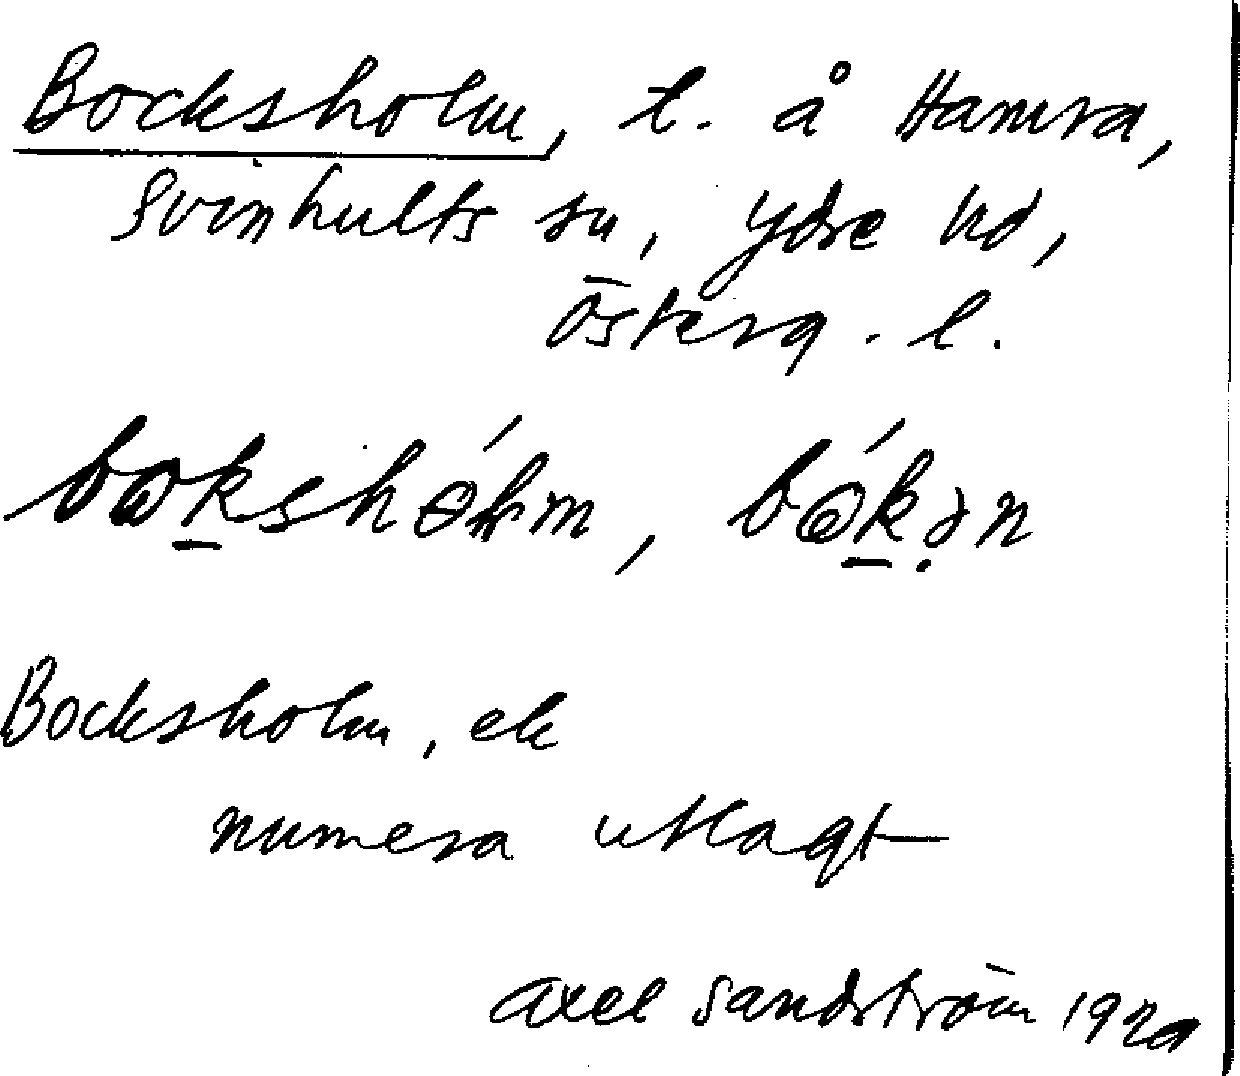 Bocksholm, l. å Hamra,
Svinhults sn, Ydre hd,
Österg. l.
Bocksholm, ek
numera utlagt
Axel Sandström 1929